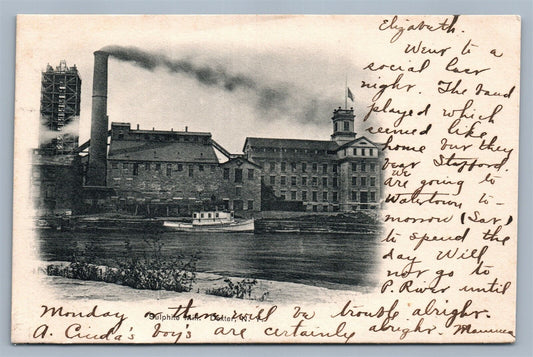 Elizabeth.
Went to a
social last
night. The band
played which
seemed like
home but they
beat Stafford.
We
are going to
Watertown to-
morrow (Sat)
to spend the
day Will
not go to
P. River until
Monday n then will be trouble alright.
Sulphite Mill. N. Y.
A. boys are certainly alright.